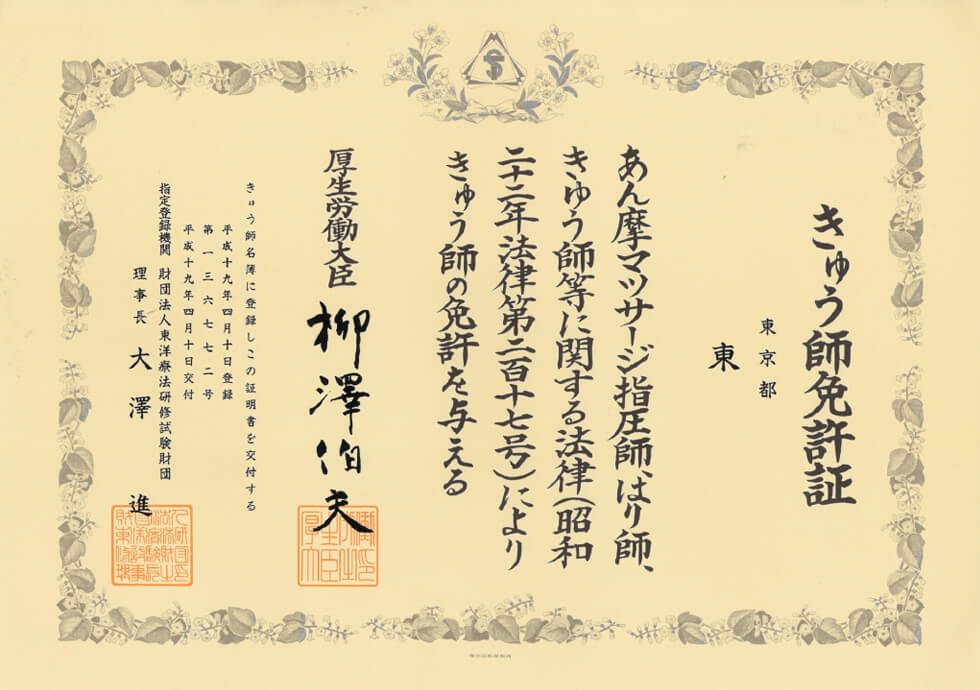 きゅう師免許証
東京都
東
あん摩マツサージ指圧師、はり師、
きゆう師等に関する法律(昭和
二十二年法律第二百十七号)により
きゅう師の免許を与える
厚生労働大臣 柳澤伯夫
きゅう師名簿に登録しこの証明書を交付する
平成十九年四月十日登録
第一三六七七二号
平成十九年四月十日交付
指定登録機関 財団法人東洋療法研修試験財団
理事長 大澤 進